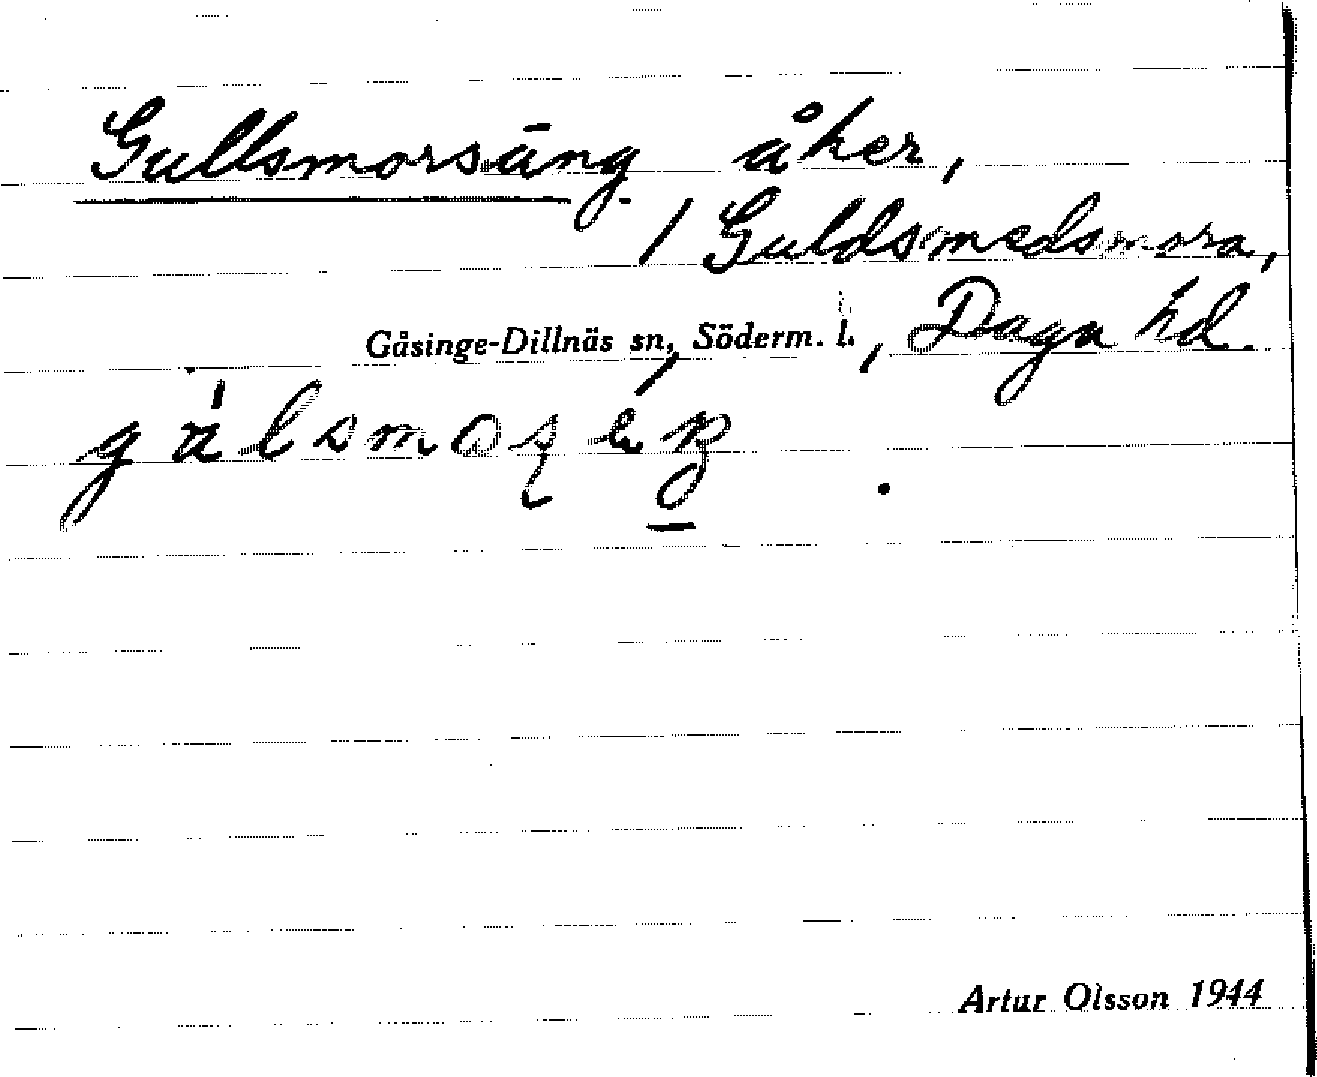 Gullsmorsäng åker,
/ Guldsmedsmora,
Gåsinge-Dillnäs sn, Söderm. l., Daga hd.
Artur Olsson 1944